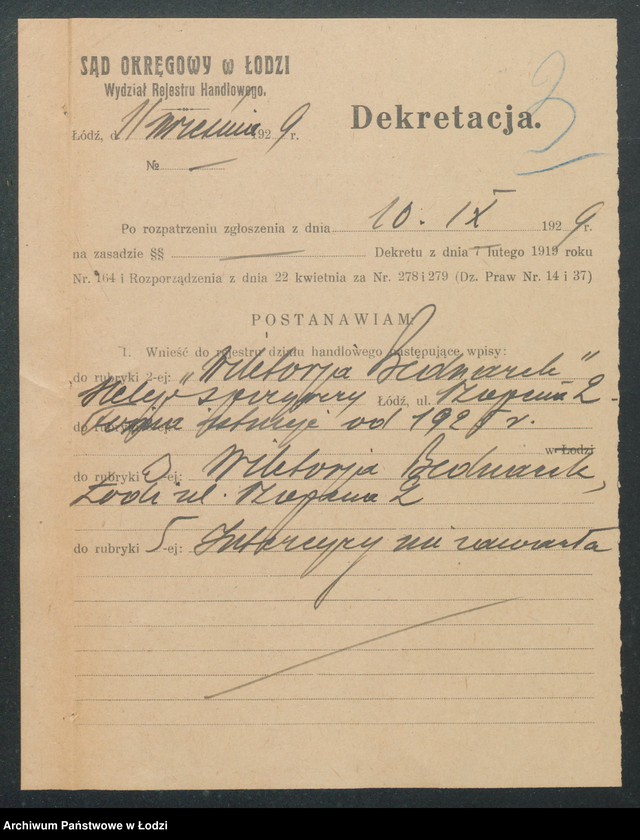 SĄD OKRĘGOWY w ŁODZI
Wydział Rejestru Handlowego.
Łódź, d. 11 września 1929 r.
Dekretacja. 3
№ —
Po rozpatrzeniu zgłoszenia z dnia 10. IX 1929 r.
na zasadzie §§ — Dekretu z dnia 7 lutego 1919 roku
Nr. 164 i Rozporządzenia z dnia 22 kwietnia za Nr. 278 i 279 (Dz. Praw Nr. 14 i 37)
POSTANAWIAM
1. Wnieść do rejestru działu handlowego następujące wpisy:
do rubryki 2-ej: „Wiktorja Bednarek"
Sklep spożywczy Łódź, ul. 2.
do rubryki istnieje od 1925 r.
w Łodzi
do rubryki 3-ej: Wiktorja Bednarek,
Łódź ul. 2
do rubryki 5-ej: Intercyzy nie zawarła
Archiwum Państwowe w Łodzi